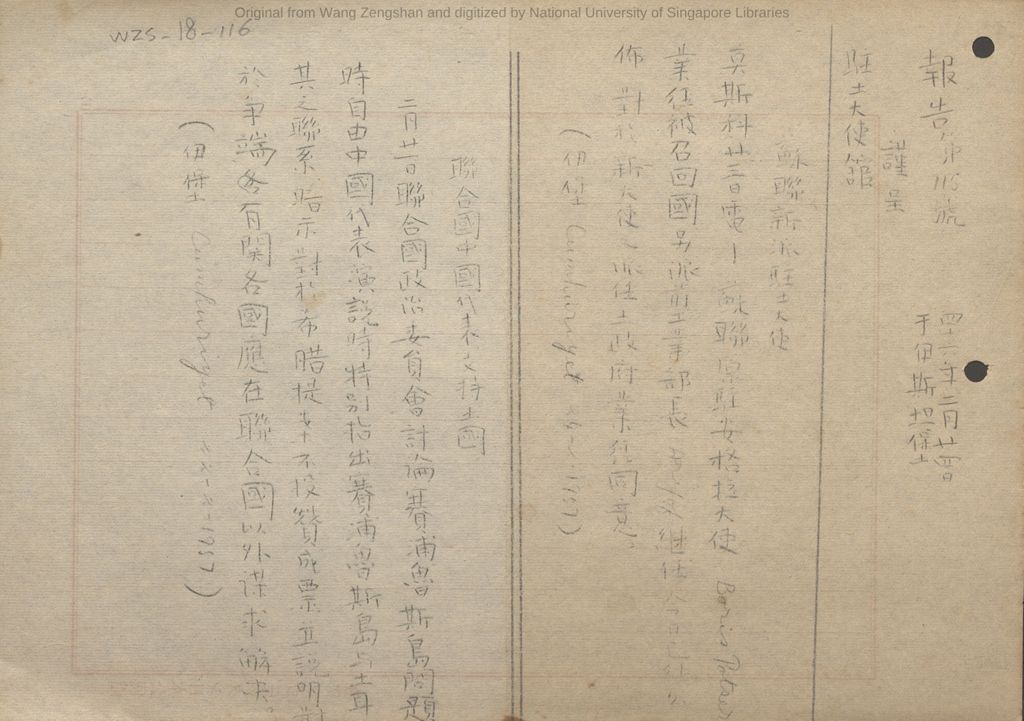 Original from Wang Zengshan and digitized by National University of Singapore Libraries
WZS-18-116
報告第115號
四六年二月廿四日
于伊斯坦堡
謹呈
駐土大使館
蘇聯新派駐土大使
莫斯科廿三日電!蘇聯原駐安格拉大使 Boris
業經被召回國另派前工業部長 繼任今日已
佈對於新大使之派任土政府業經同意。
(伊堡 Cumhuriyet -1957)
聯合國中國代表支持土國
二月廿日聯合國政治委員會討論賽浦魯斯島問題
時自由中國代表演說時特別指出賽浦魯斯島與土耳
其之聯系暗示對於希腊提案不投贊成票並說明對
於爭端各有関各國應在聯合國以外謀求解決。
(伊堡 Cumhuriyet -1957)